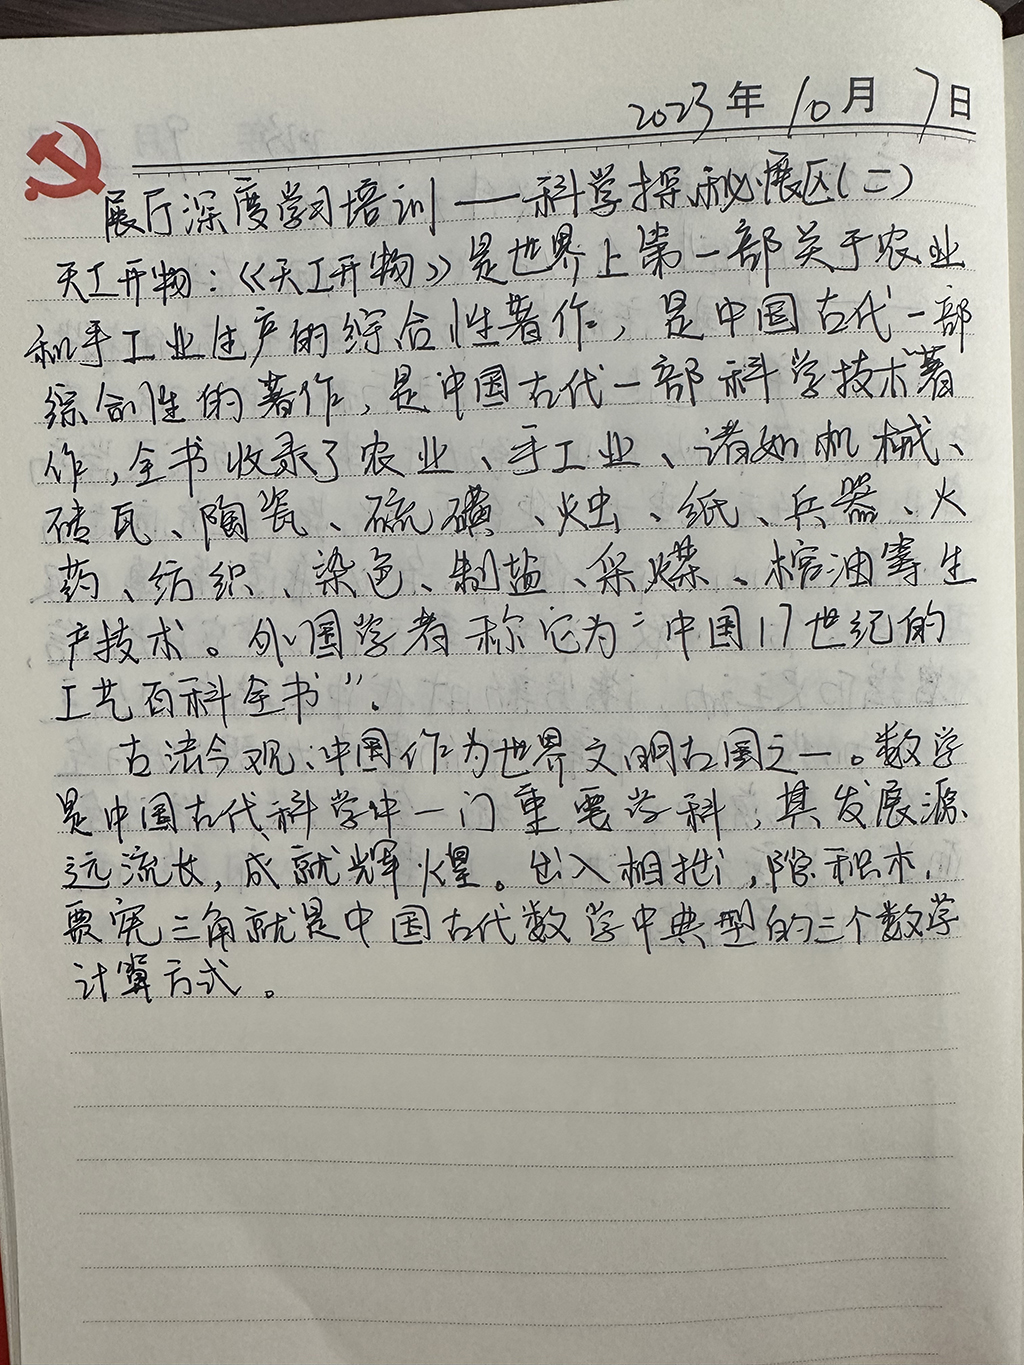 2023年10月7日
展厅深度学习培训——科学探秘展区(二)
天工开物:《天工开物》是世界上第一部关于农业
和手工业生产的综合性著作,是中国古代一部
综合性的著作,是中国古代一部科学技术著
作,全书收录了农业、手工业、诸如机械、
砖瓦、陶瓷、硫磺、烛、纸、兵器、火
药、纺织、染色、制盐、采煤、榨油等生
产技术。外国学者称它为“中国17世纪的
工艺百科全书”.
古法今观:中国作为世界文明古国之一。数学
是中国古代科学中一门重要学科,其发展源
远流长,成就辉煌。出入相,隙积术,
贾宪三角就是中国古代数学中典型的三个数学
计算方式。